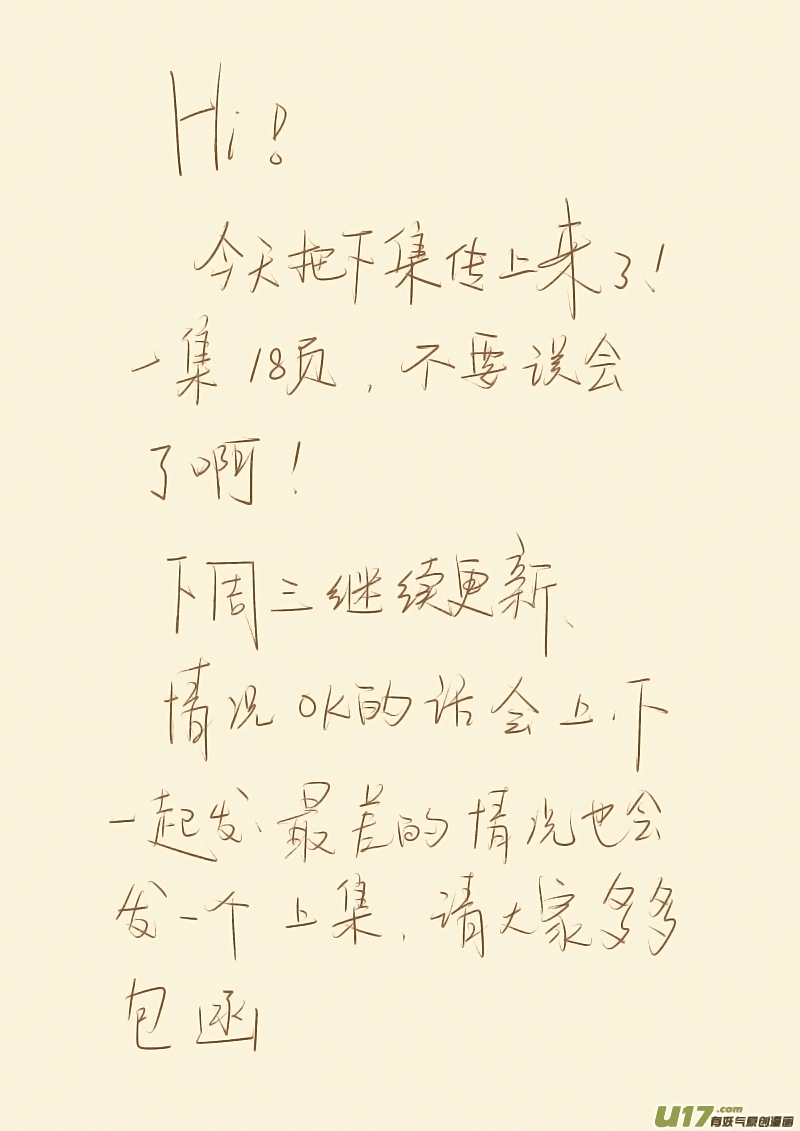 Hi!
今天把下集传上来了!
一集18页,不要误会
了啊!
下周三继续更新、
情况OK的话会上、下
一起发、最差的情况也会
发一个上集,请大家多多
包涵
U17.com
有妖气原创漫画